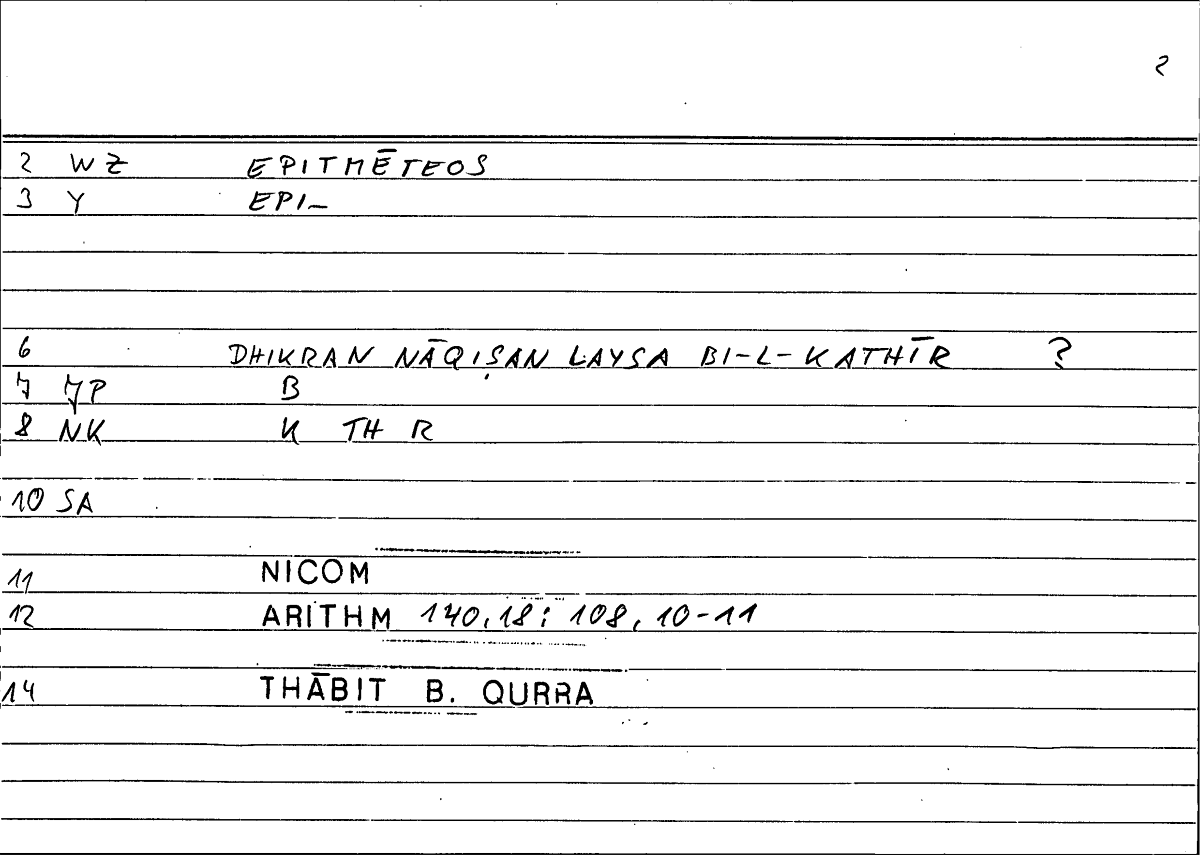 2
2 WZ EPITMĒTEOS
3 Y EPI_
6 DHIKRAN NĀQIṢAN LAYSA BI-L-KATHĪR ?
7 JP B
8 NK K TH R
10 SA
11 NICOM
12 ARITHM 140,18; 108,10-11
14 THĀBIT B. QURRA